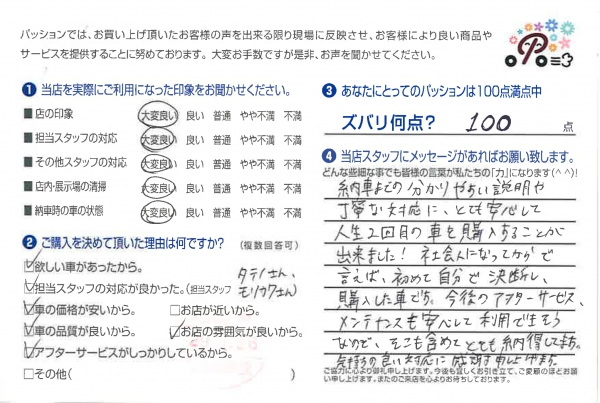 パッションでは、お買い上げ頂いたお客様の声を出来る限り現場に反映させ、お客様により良い商品や
サービスを提供することに努めております。大変お手数ですが是非、お声を聞かせてください。
❶ 当店を実際にご利用になった印象をお聞かせください。
■店の印象 大変良い 良い 普通 やや不満 不満
■担当スタッフの対応 大変良い 良い 普通 やや不満 不満
■その他スタッフの対応 大変良い 良い 普通 やや不満 不満
■店内・展示場の清掃 大変良い 良い 普通 やや不満 不満
■納車時の車の状態 大変良い 良い 普通 やや不満 不満
❷ ご購入を決めて頂いた理由は何ですか? (複数回答可)
☑欲しい車があったから。
☑担当スタッフの対応が良かった。(担当スタッフ タテノさん、モリカワさん)
☑車の価格が安いから。 □お店が近いから。
☑車の品質が良いから。 ☑お店の雰囲気が良いから。
☑アフターサービスがしっかりしているから。
□その他( )
❸ あなたにとってのパッションは100点満点中
ズバリ何点? 100 点
❹ 当店スタッフにメッセージがあればお願い致します。
どんな些細な事でも皆様の言葉が私たちの「力」になります(^^)!
納車までの分かりやすい説明や
丁寧な対応に、とても安心して
人生2回目の車を購入することが
出来ました! 社会人になってからで
言えば、初めて自分で決断し、
購入した車です。今後のアフターサービス、
メンテナンスも安心して利用できそう
なので、そこも含めてとても納得してます。
気持ちの良い対応に感謝申し上げます。
ご協力に心より御礼申し上げます。今後も宜しくお引き立て、ご愛顧のほどお願
い申し上げます。またのご来店を心よりお待ちしております。